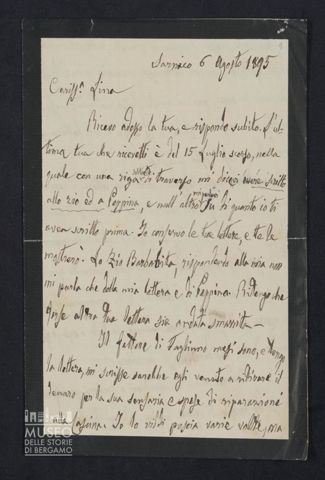 Sarnico 6 Agosto 1895
Cariss.ª Lina
Ricevo adesso la tua, e rispondo subito. L'ul-
tima tua che ricevetti è del 15 Luglio scorso, nella
quale con una riga di traverso mi dicevi avere scritto
allo zio ed a Peppina, e null'altro di quanto io ti
avea scritto prima. Io conservo le tue lettere, e te le
mostrerò. Lo Zio rispondendo alla mia non
mi parla che della mia lettera e di Peppina. Ritengo che
forse altra tua lettera sia andata smarrita —
Il fattore di Tagliuno mesi sono, e tengo
la lettera, mi scrisse sarebbe egli venuto a ritirare il
denaro per la sua senseria e spese di riparazioni
alla Cascina. Io lo vidi poscia varie volte, ma
MUSEO
DELLE STORIE
DI BERGAMO